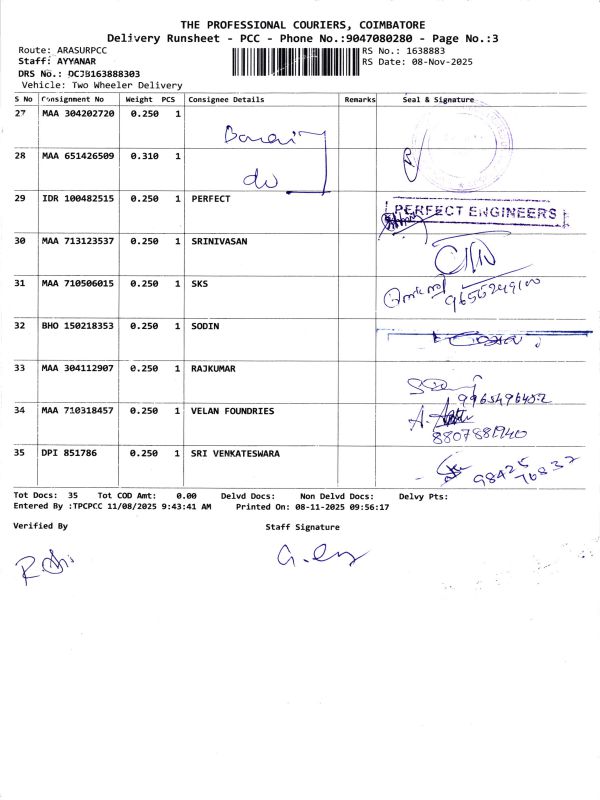 THE PROFESSIONAL COURIERS, COIMBATORE
Delivery Runsheet - PCC - Phone No.:9047080280 - Page No.:3
Route: ARASURPCC
RS No.: 1638883
Staff: AYYANAR
RS Date: 08-Nov-2025
DRS No.: DCJB163888303
Vehicle: Two Wheeler Delivery
S No Consignment No Weight PCS Consignee Details Remarks Seal & Signature
27 MAA 304202720 0.250 1
28 MAA 651426509 0.310 1
29 IDR 100482515 0.250 1 PERFECT PERFECT ENGINEERS
30 MAA 713123537 0.250 1 SRINIVASAN
31 MAA 710506015 0.250 1 SKS
32 BHO 150218353 0.250 1 SODIN
33 MAA 304112907 0.250 1 RAJKUMAR
9965496452
34 MAA 710318457 0.250 1 VELAN FOUNDRIES
8807881940
35 DPI 851786 0.250 1 SRI VENKATESWARA 98425 76832
Tot Docs: 35 Tot COD Amt: 0.00 Delvd Docs: Non Delvd Docs: Delvy Pts:
Entered By :TPCPCC 11/08/2025 9:43:41 AM Printed On: 08-11-2025 09:56:17
Verified By Staff Signature